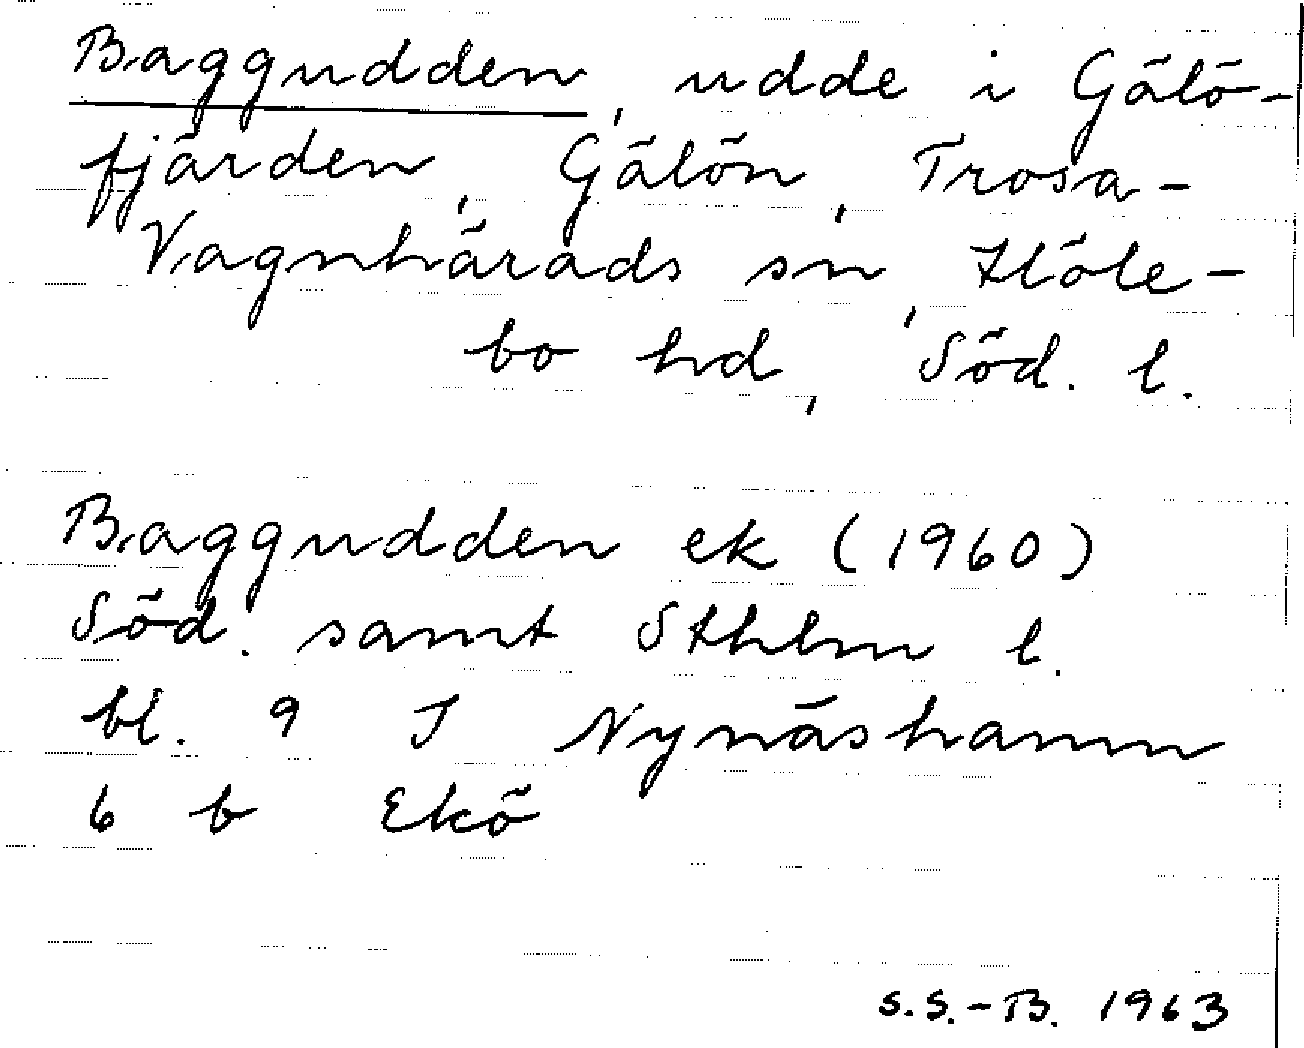 Baggudden, udde i Gälö-
fjärden, Gälön, Trosa-
Vagnhärads sn, Höle-
bo hd, Söd. l.
Baggudden ek (1960)
Söd. samt Sthlm l.
bl. 9 I Nynäshamn
6 b Ekö
S.S.-B. 1963